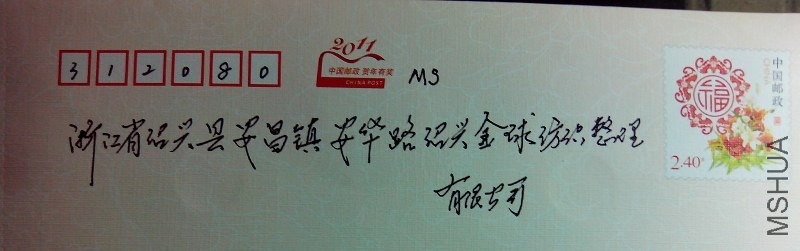 312080
2011
中国邮政 贺年有奖
CHINA POST
MS
浙江省绍兴县安昌镇安华路绍兴金球纺织整理
有限公司
福
中国邮政
2.40元
MSHUA